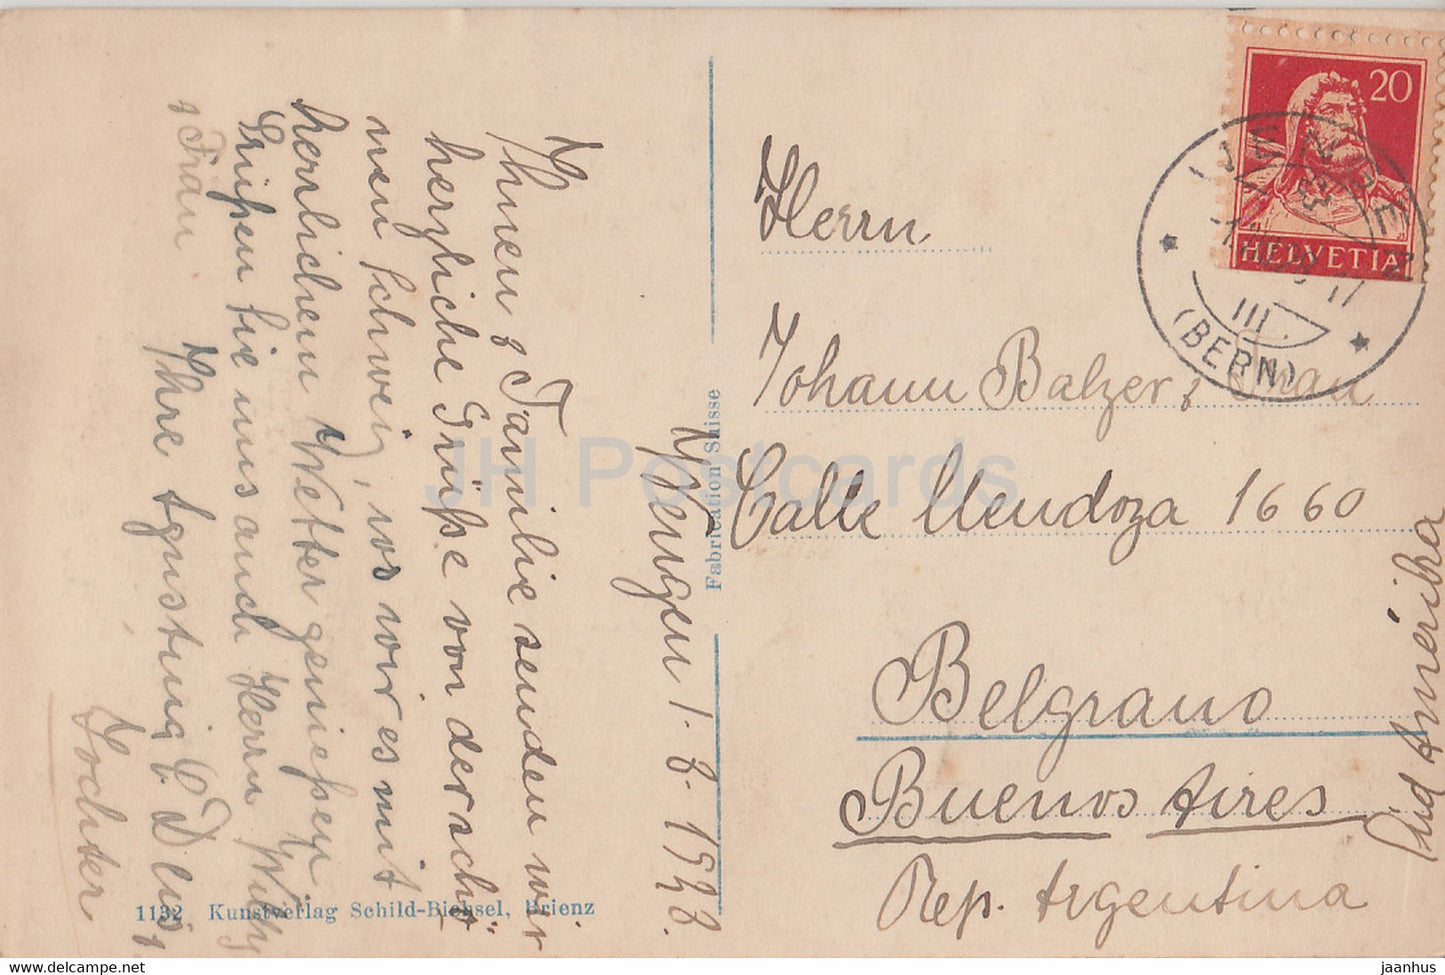 Wengen 1-8-1928.
Ihnen & Familie senden wir
herzliche Grüße von der schö
nen Schweiz, wo wir es mit
herrlichem Wetter genießen
Grüßen Sie uns auch Herrn Willy
& Frau
Ihre Agustinus &
Tochter
Herrn
Johann Balzer &
Calle Mendoza 1660
Belgrano
Buenos Aires
Rep. Argentina
Süd Amérika
20
HELVETIA
WENGEN
(BERN)
III.
Fabrication Suisse
1132 Kunstverlag Schild-Bichsel, Brienz
JH Postcards
https://jhpostcard.com
jaanhus